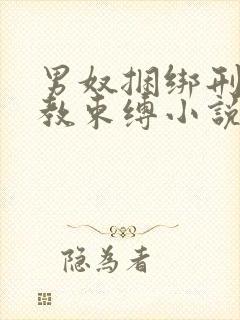 男奴捆绑刑
教束缚小说
隐为者